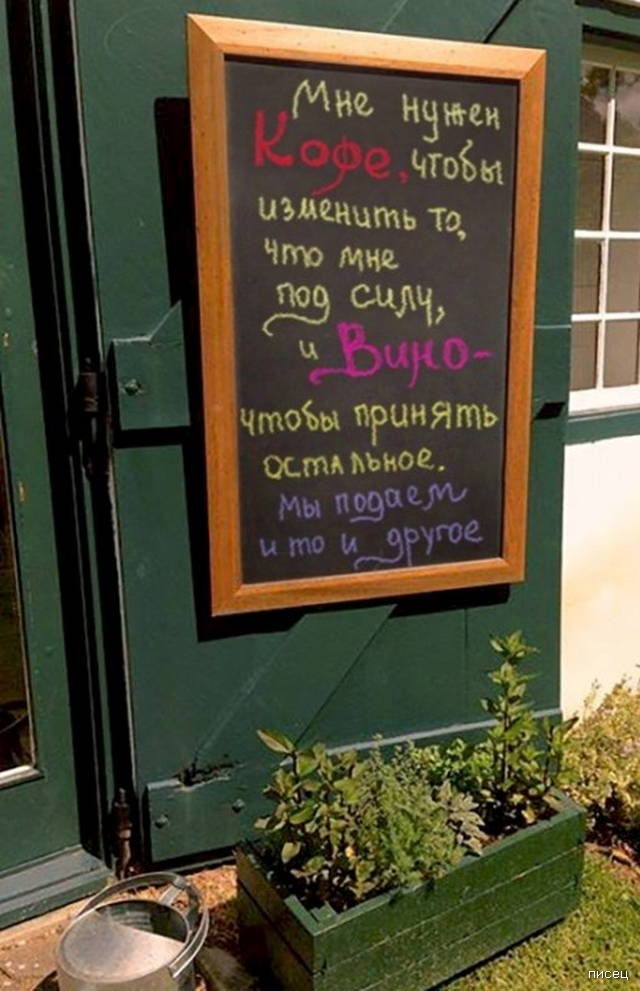 Мне нужен
Кофе, чтобы
изменить то,
что мне
под силу,
и Вино-
чтобы принять
остальное.
мы подаем
и то и другое
писец